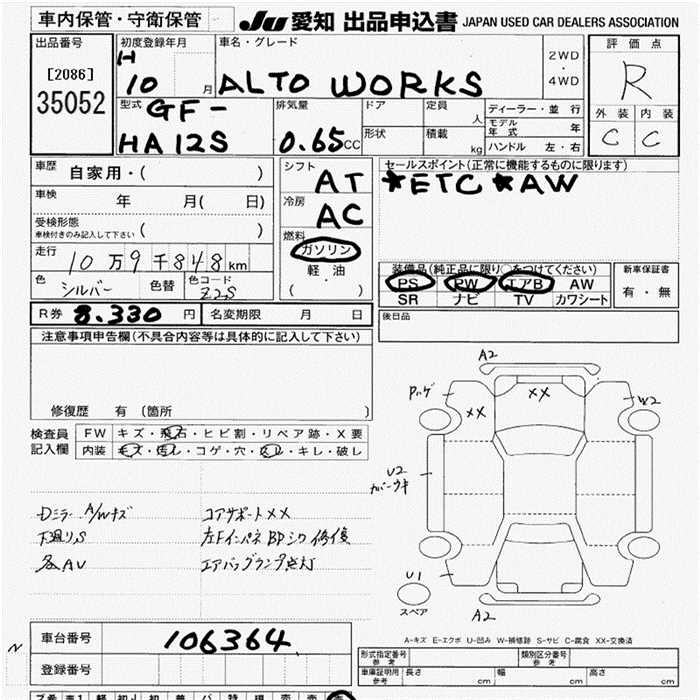 車内保管・守衛保管
JU 愛知 出品申込書 JAPAN USED CAR DEALERS ASSOCIATION
出品番号
[2086]
35052
初度登録年月
H
10 月
車名・グレード
ALTO WORKS
2WD
・
4WD
評価点
R
外装 内装
C C
型式
GF-
HA12S
排気量
0.65CC
ドア
定員
人
形状
積載
kg
ディーラー・並行
モデル年式 年
ハンドル 左・右
車歴 自家用・( )
車検 年 月( 日)
受検形態
車検付きのみ記入して下さい ( )
走行 10万9千848km
色 シルバー 色替 色コード Z2S
シフト
AT
冷房
AC
燃料
ガソリン
軽油
( )
セールスポイント(正常に機能するものに限ります)
★ETC ★AW
装備品(純正品に限り○をつけてください)
PS PW エアB AW
SR ナビ TV カワシート
新車保証書
有・無
R券 8.330 円 名変期限 月 日
後日品
注意事項申告欄(不具合内容等は具体的に記入して下さい)
修復歴 有 (箇所 )
検査員
記入欄
FW キズ・飛石・ヒビ割・リペア跡・X要
内装 キズ・汚レ・コゲ・穴・スレ・キレ・破レ
Dミラー A/Wキズ コアサポートXX
下廻りS 左Fインパネ BPシワ 修復
各AU エアバッグランプ点灯
A2
XX
XX
W2
U2
カバーウキ
U1
スペア
A2
A-キズ E-エクボ U-凹み W-補修跡 S-サビ C-腐食 XX-交換済
N
車台番号 106364
登録番号
形式指定番号
参考
類別区分番号
参考
車庫証明用
参考
長さ cm 幅 cm 高さ cm